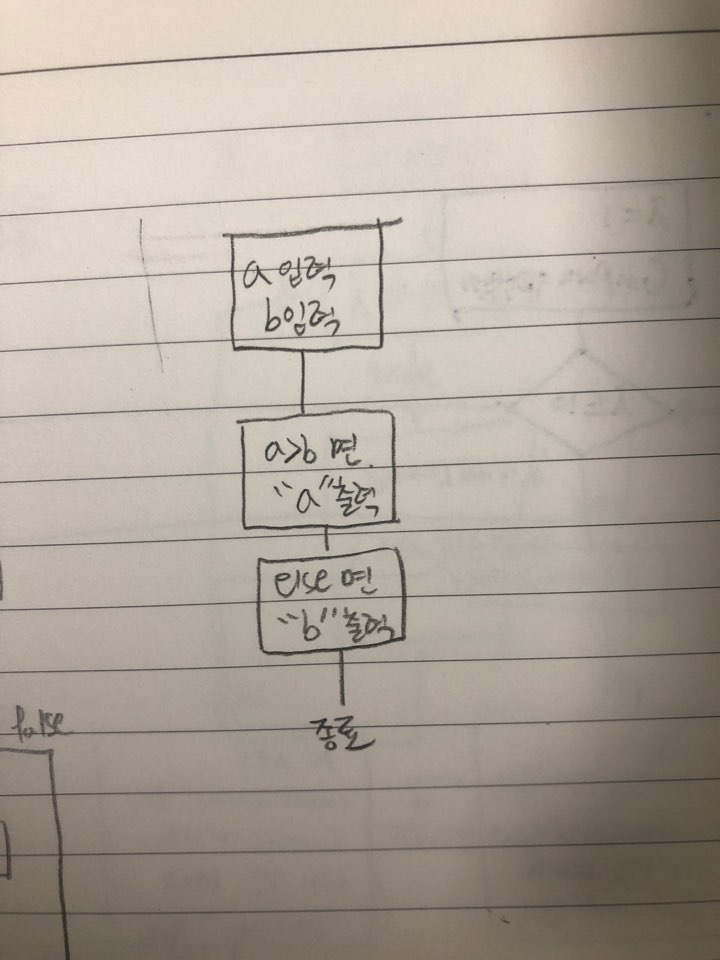 a 입력
b입력
a>b 면
"a" 출력
else 면
"b" 출력
종료
false